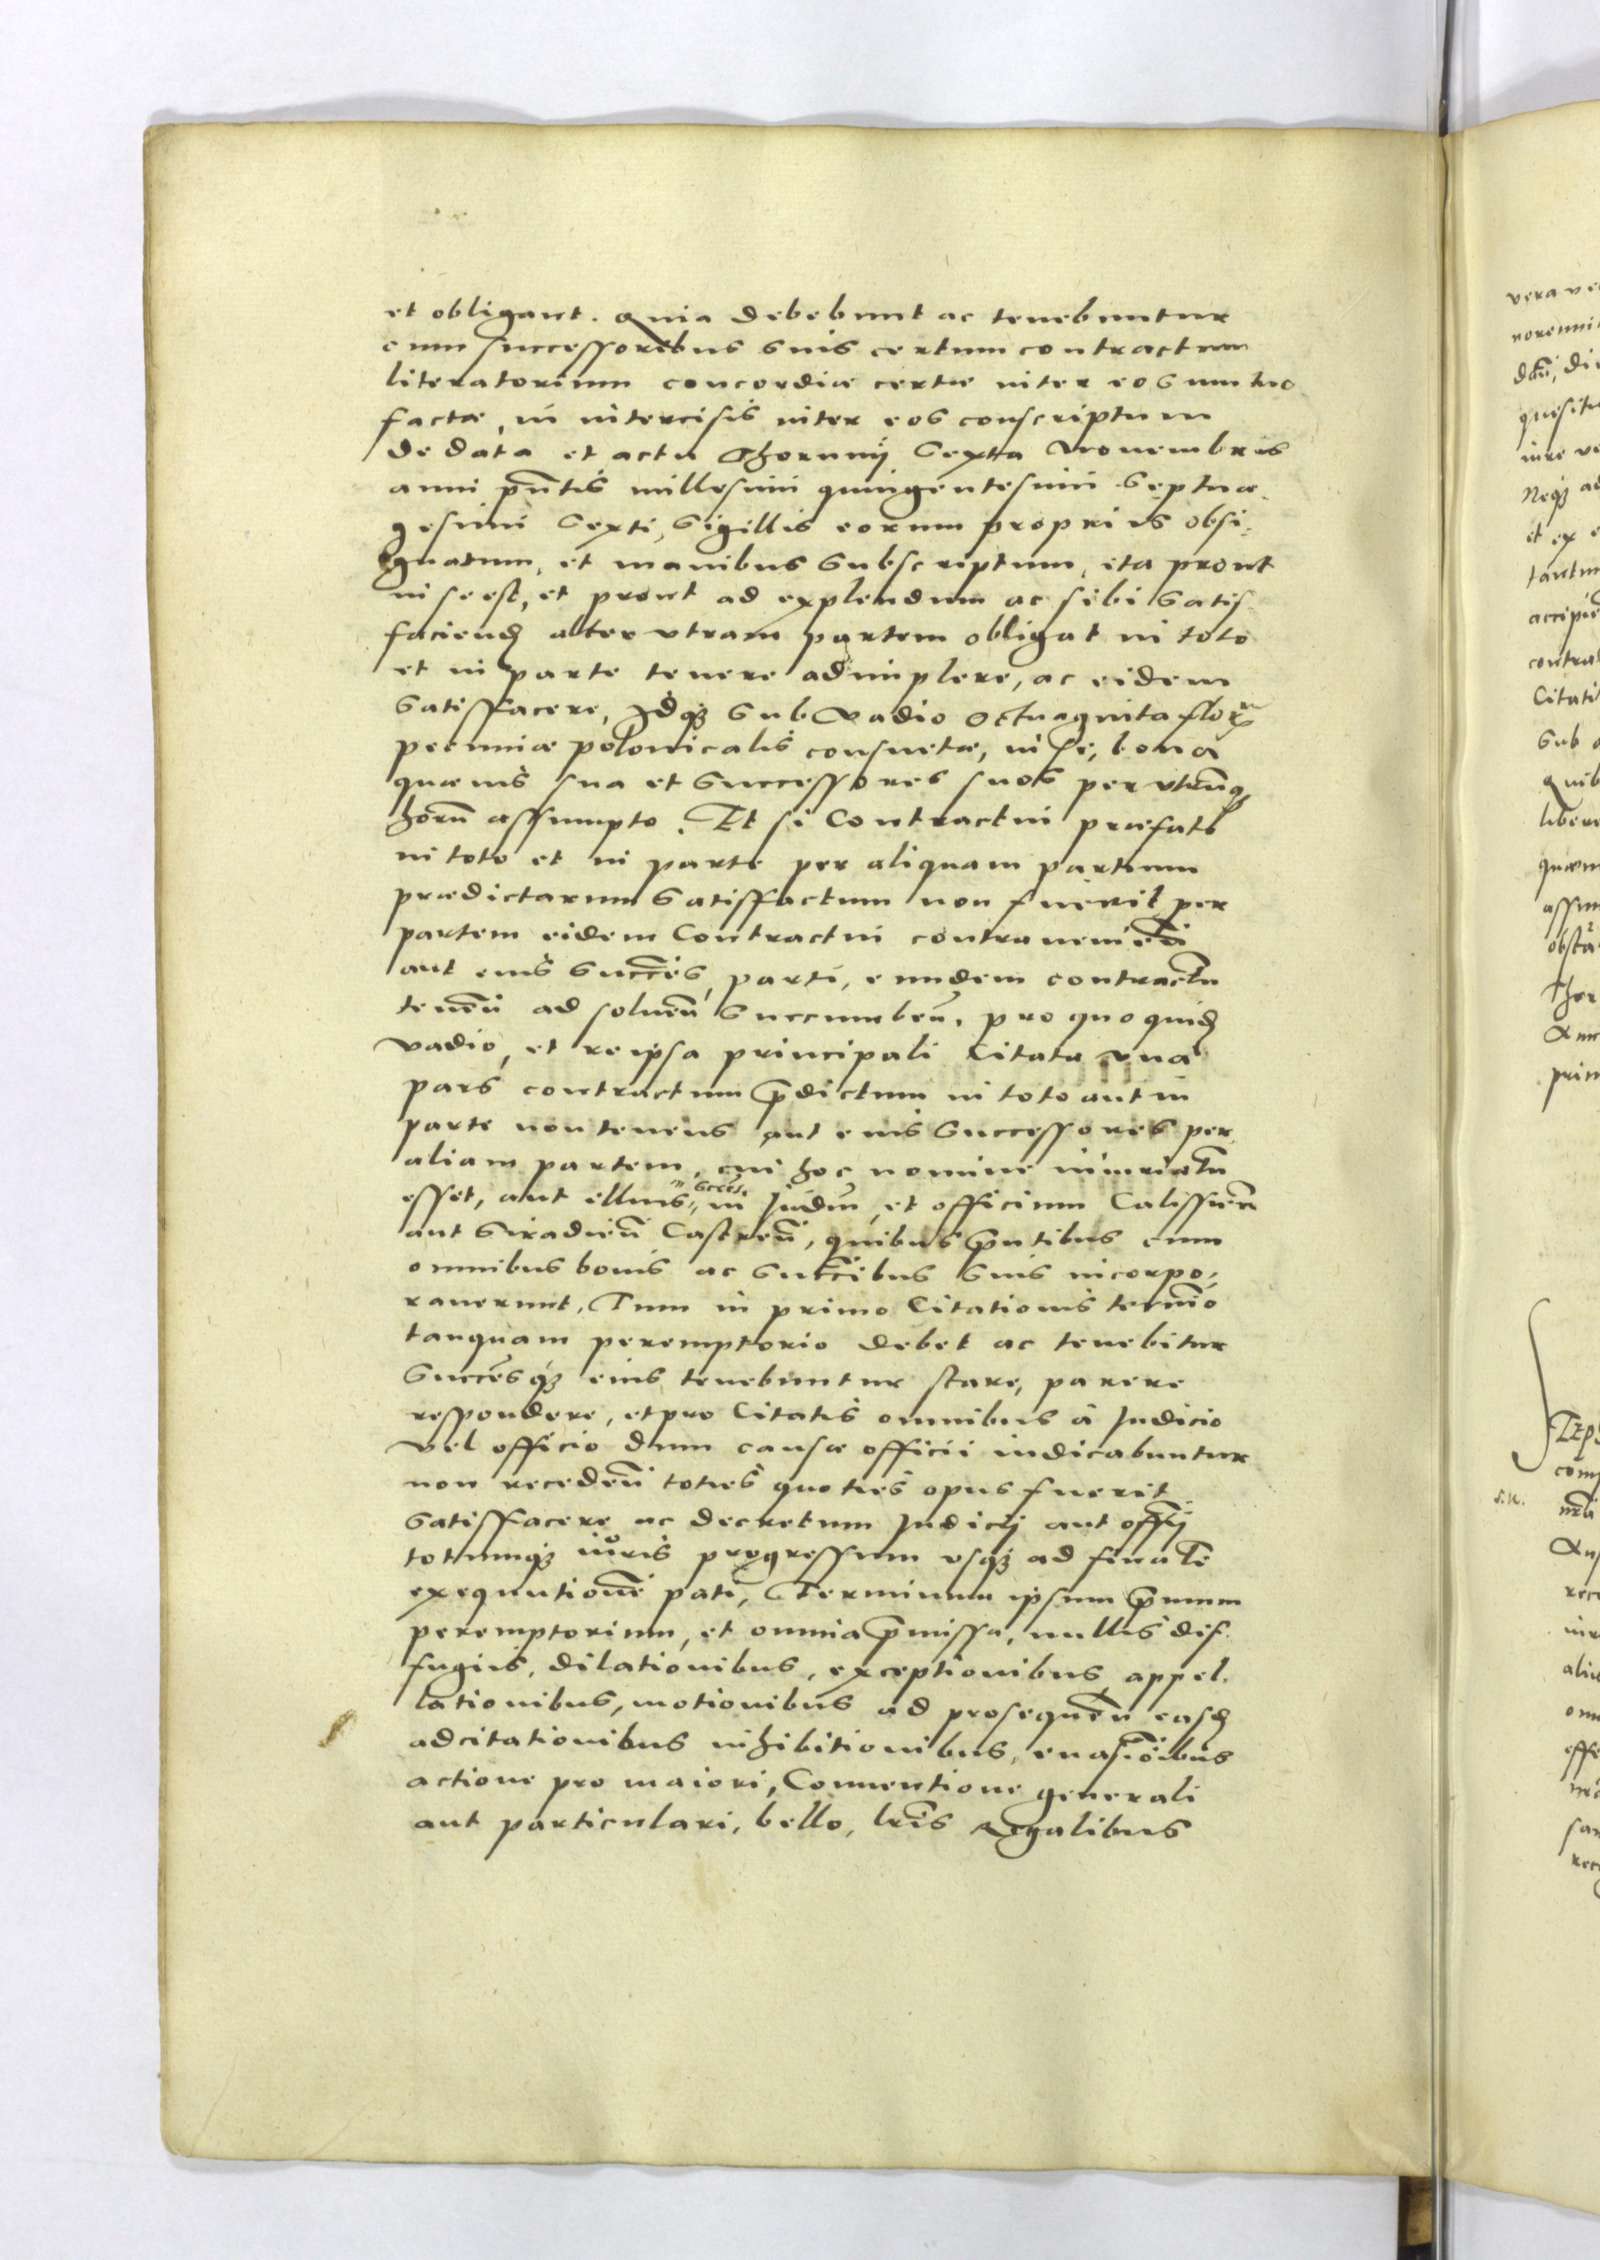 et obligant. Quia debebunt ac tenebuntur
cum successoribus suis certum contractum
literatorium concordiæ certæ inter eos mutuo
factæ, in intercisis inter eos conscriptum
de data et actu Thorunij Sexta Novembris
anni pñtis millesimi quingentesimi septua
gesimi Sexti, Sigillis eorum propriis obsi,
gnatum, et manibus subscriptum, ita prout
in se est, et prout ad explendum ac sibi satis
faciend alter utram partem obligat in toto
et in parte tenere adimplere, ac eidem
satisfacere, Idq3 sub vadio octuaginta flor
pecuniæ polonicalis consuetæ, in se, bona
quævis sua et successores suos per utrunq
horũ assumpto. Et si Contractui præfato
in toto et in parte per aliquam partium
prædictarum satisfactum non fuerit, per
partem eidem Contractui contravenieñ
aut eius succēs, parti, eundem contractũ
teneñ ad solueñ succumbeñ, pro quo quid
vadio, et re ipsa principali Citata una
pars contractum p̃dictum in toto aut in
parte non tenens aut eius successores per
aliam partem, cui hoc nomine iniuriatũ
esset, aut illius succes. in Judiũ, et officium Calissieñ
aut Siradieñ Castreñ, quibus p̃ntibus cum
omnibus bonis ac succibus suis incorpo,
raverunt, Tum in primo Citationis termĩo
tanquam peremptorio debet ac tenebitur
succēsq3 eius tenebuntur stare, parere
respondere, et pro Citatis omnibus à Judicio
vel officio dum causæ officii iudicabuntur
non recedeñ toties quoties opus fuerit
satisfacere ac decretum Judicij aut offij
totumq3 iuris progressum usq3 ad finalē
exequutionē pati, Terminum ipsum p̃mum
peremptorium, et omnia p̃missa, nullis dif
fugiis, dilationibus, exceptionibus appel.
lationibus, motionibus ad prosequeñ easd
adcitationibus inhibitionibus, euasiõibus
actione pro maiori, Conventione generali
aut particulari, bello, lris Regalibus